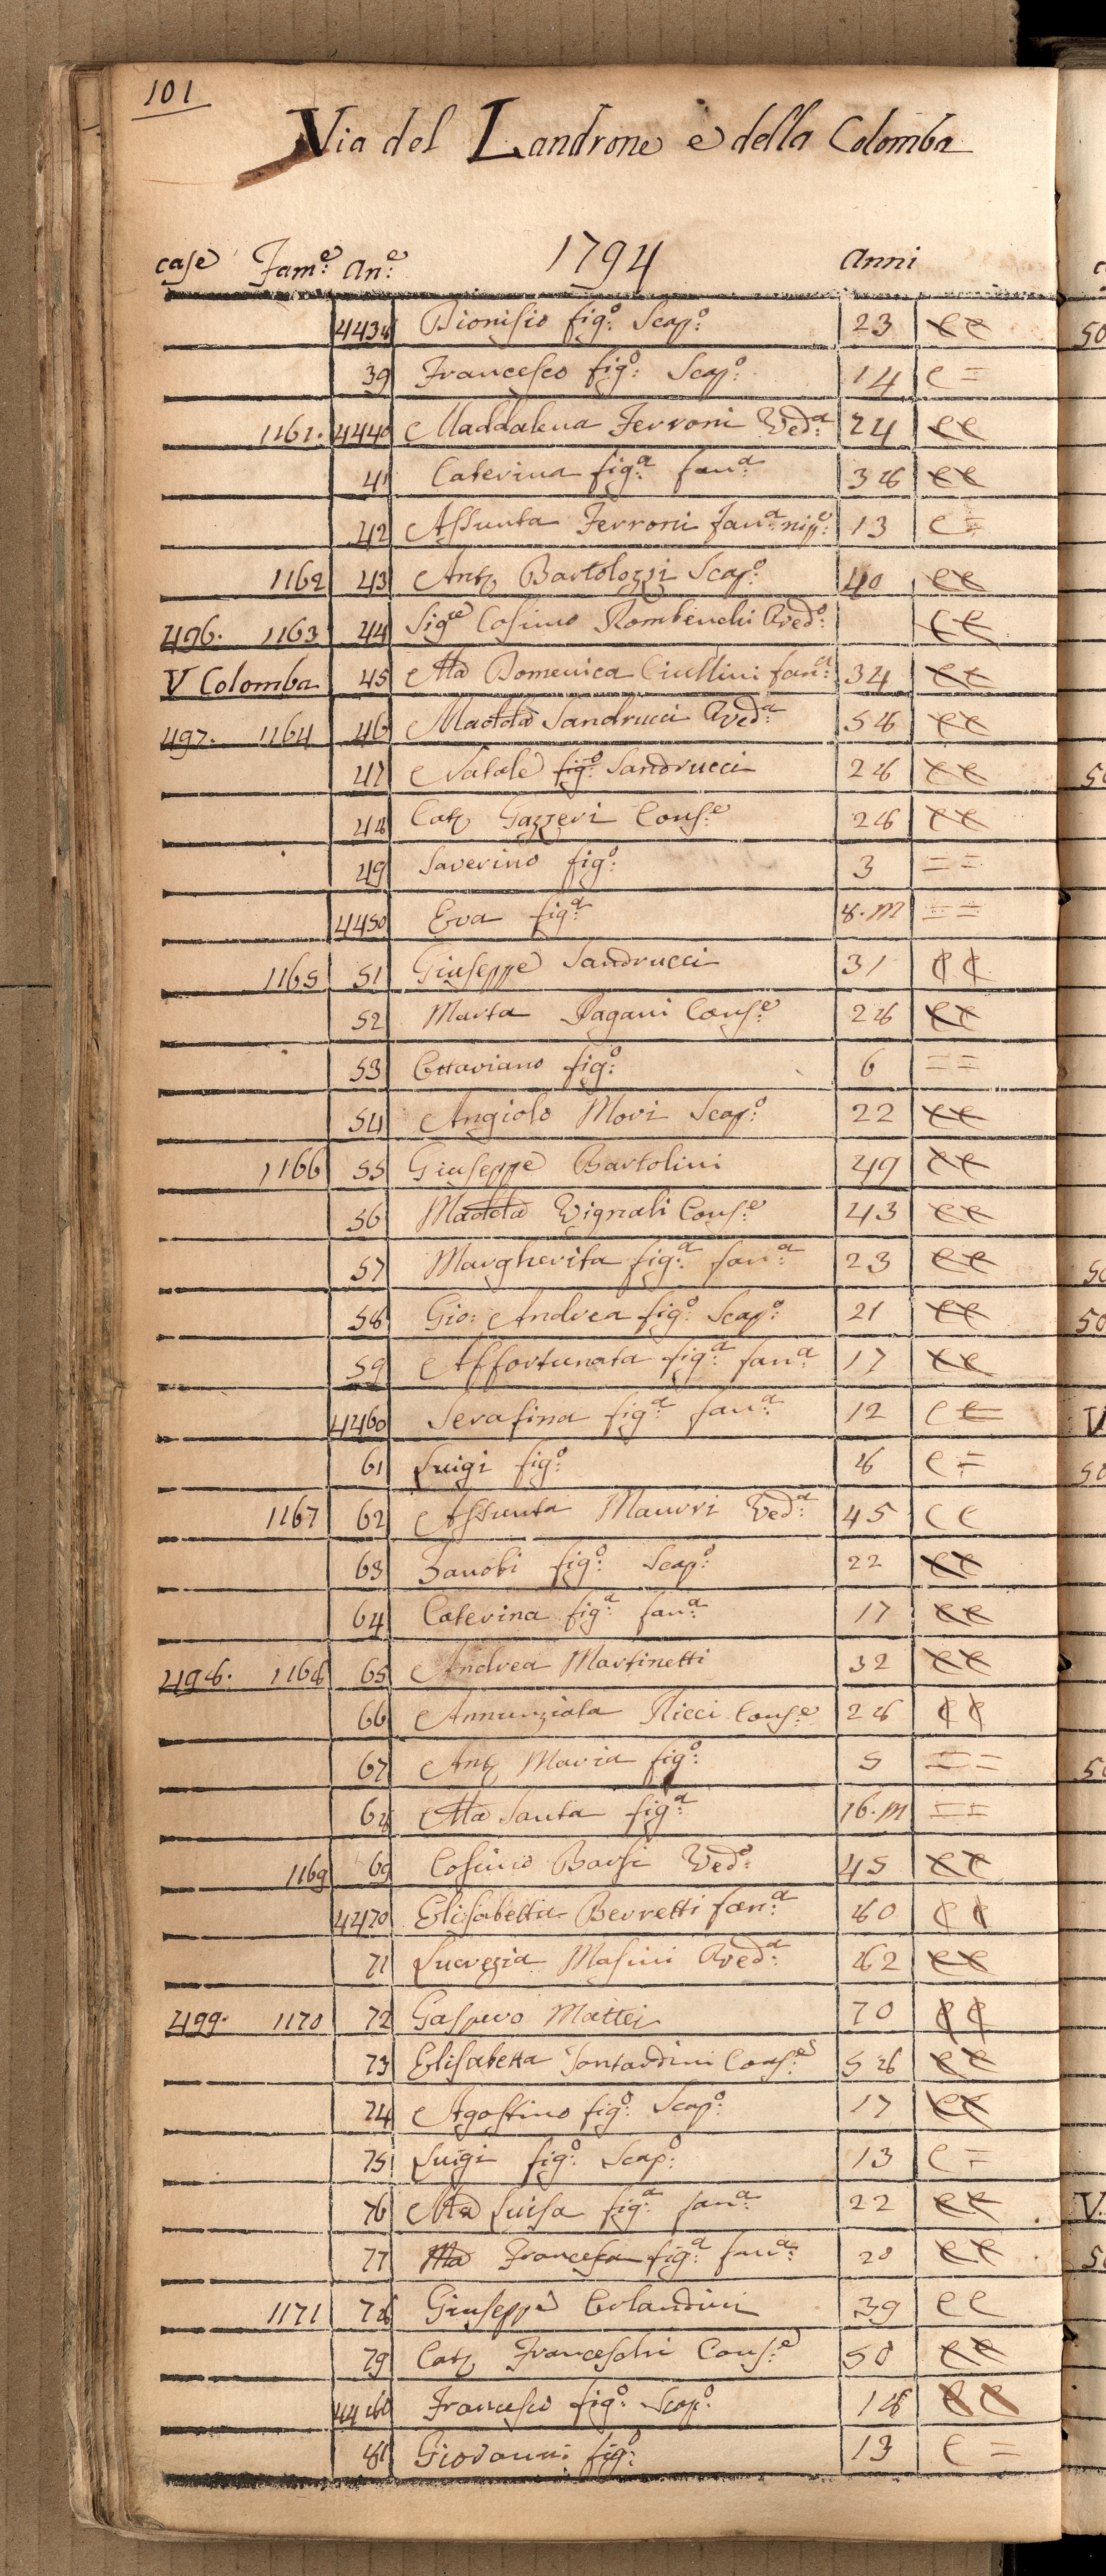 101
Via del Landrone e della Colomba
case Fam:e An:e 1794 Anni
4438 Dionisio fig:o Scap:o 23 CC
39 Francesco fig:o Scap:o 14 C =
1161. 4440 Maddalena Ferroni Ved:a 24 CC
41 Caterina fig:a fan:a 38 CC
42 Assunta Ferroni fan:a nip:e 13 C =
1162 43 Ant.o Bartolozzi Scap:o 40 CC
496. 1163 44 Sig.re Cosimo Rombenchi Ved:o CC
V Colomba 45 Ma Domenica Ciullini fan:a 34 CC
497. 1164 46 Madda Sandrucci Ved:a 58 CC
47 Natale fig:o Sandrucci 28 CC
48 Cat.a Gazzeri Cons:e 28 CC
49 Saverino fig:o 3 = =
4450 Eva fig:a 8. m = =
1165 51 Giuseppe Sandrucci 31 CC
52 Marta Pagani Cons:e 28 CC
53 Ottaviano fig:o 6 = =
54 Angiolo Mori Scap:o 22 CC
1166 55 Giuseppe Bartolini 49 CC
56 Madda Vignali Cons:e 43 CC
57 Margherita fig:a fan:a 23 CC
58 Gio: Andrea fig:o Scap:o 21 CC
59 Affortunata fig:a fan:a 17 CC
4460 Serafina fig:a fan:a 12 C C
61 Luigi fig:o 8 C =
1167 62 Assunta Maurri Ved:a 45 C C
63 Zanobi fig:o Scap:o 22 CC
64 Caterina fig:a fan:a 17 CC
498. 1168 65 Andrea Martinetti 32 CC
66 Annunziata Ricci Cons:e 28 CC
67 Ant.o Maria fig:o 5 = =
68 Ma Santa fig:a 16. m = =
1169 69 Cosimo Barsi Ved:o 45 CC
4470 Elisabetta Berretti fan:a 80 CC
71 Lucrezia Masini Ved:a 82 CC
499. 1170 72 Gaspero Mattei 70 CC
73 Elisabetta Sontardini Cons:e 58 CC
74 Agostino fig:o Scap:o 17 CC
75 Luigi fig:o Scap:o 13 C =
76 Ma Luisa fig:a fan:a 22 CC
77 Ma Francesca fig:a fan:a 20 CC
1171 78 Giuseppe Orlandini 39 C C
79 Cat.a Franceschi Cons:e 50 CC
4480 Francesco fig:o Scap:o 18 CC
81 Giovanni fig:o 13 C =